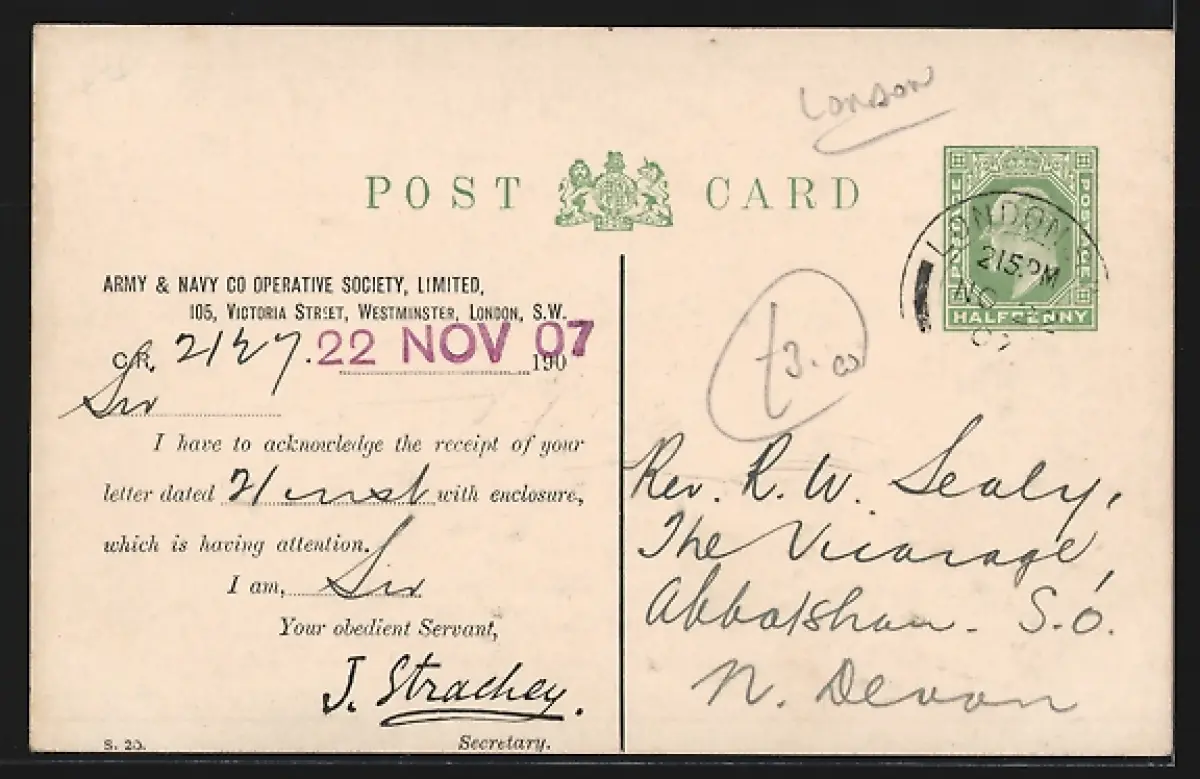 London
POST CARD
POSTAGE
POSTAGE
HALFPENNY
LONDON
2 15 PM
NO 22
07
ARMY & NAVY CO OPERATIVE SOCIETY, LIMITED,
105, VICTORIA STREET, WESTMINSTER, LONDON, S.W.
C.R. 2127. 22 NOV 07 190
Sir
I have to acknowledge the receipt of your
letter dated 21 inst with enclosure,
which is having attention.
I am, Sir
Your obedient Servant,
J. Strachey.
Secretary.
S. 20.
£3.00
Rev. R. W. Sealy,
The Vicarage,
Abbotsham. S.O.
N. Devon